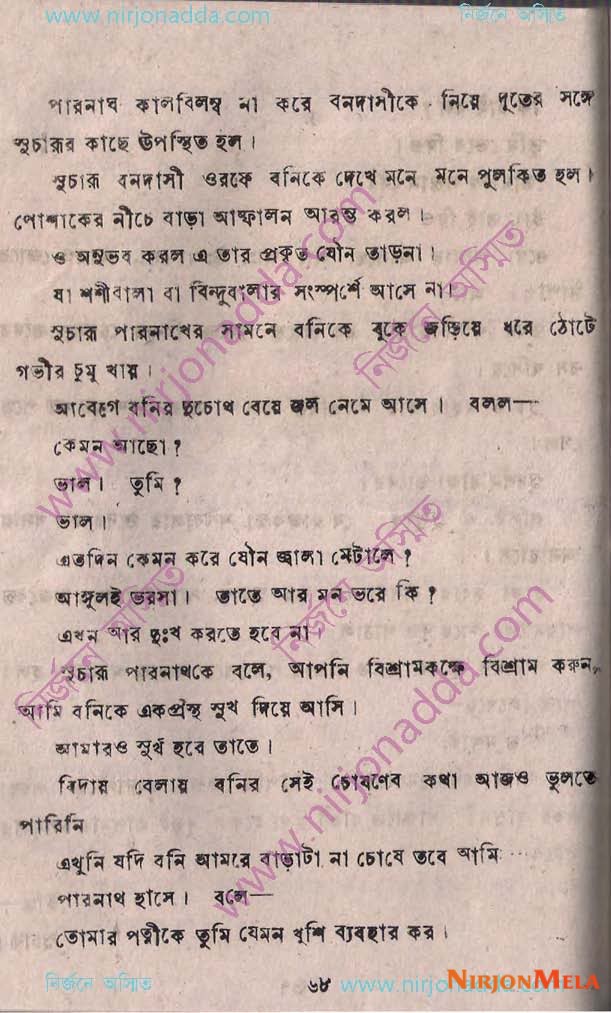 www.nirjonadda.com নির্জনে অস্মিত
পারনাথ কালবিলম্ব না করে বনদাসীকে নিয়ে দূতের সঙ্গে
সুচারুর কাছে উপস্থিত হল।
সুচারু বনদাসী ওরফে বনিকে দেখে মনে মনে পুলকিত হল।
পোশাকের নীচে বাড়া আস্ফালন আরম্ভ করল।
ও অনুভব করল এ তার প্রকৃত যৌন তাড়না।
যা শশীবালা বা বিন্দুবালার সংস্পর্শে আসে না।
সুচারু পারনাথের সামনে বনিকে বুকে জড়িয়ে ধরে ঠোটে
গভীর চুমু খায়।
আবেগে বনির দুচোখ বেয়ে জল নেমে আসে। বলল—
কেমন আছো?
ভাল। তুমি?
ভাল।
এতদিন কেমন করে যৌন জ্বালা মেটালে?
আঙ্গুলই ভরসা। তাতে আর মন ভরে কি?
এখন আর দুঃখ করতে হবে না।
সুচারু পারনাথকে বলে, আপনি বিশ্রামকক্ষে বিশ্রাম করুন,
আমি বনিকে একপ্রস্থ সুখ দিয়ে আসি।
আমারও সুখ হবে তাতে।
বিদায় বেলায় বনির সেই চোষণের কথা আজও ভুলতে
পারিনি
এখুনি যদি বনি আমার বাড়াটা না চোষে তবে আমি ...
পারনাথ হাসে। বলে—
তোমার পত্নীকে তুমি যেমন খুশি ব্যবহার কর।
নির্জনে অস্মিত ৬৮ www.nirjonadda.com
NIRJONMELA
www.nirjonadda.com নির্জনে অস্মিত
নির্জনে অস্মিত www.nirjonadda.com
নির্জনে অস্মিত